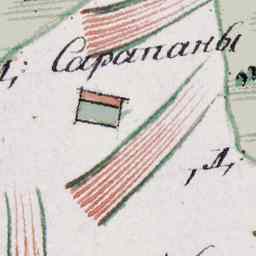 Сарапаны
Д,
,Д,